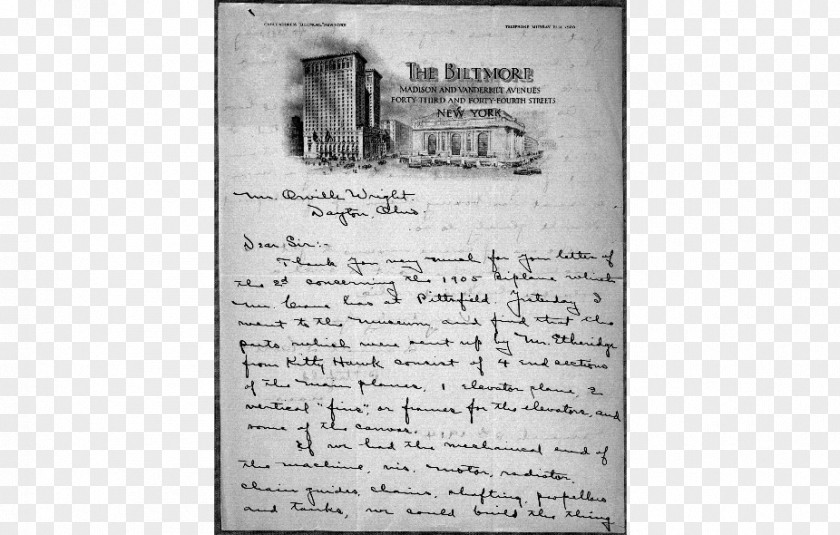 THE BILTMORE
MADISON AND VANDERBILT AVENUES
FORTY-THIRD AND FORTY-FOURTH STREETS
NEW YORK
Mr. Orville Wright.
Dayton, Ohio
Dear Sir:-
Thank you very much for your letter of
the 2d concerning the 1905 biplane which
Mr. Crane has at Pittsfield. Yesterday I
went to the Museum and find that the
parts which were sent up by Mr. Etheridge
from Kitty Hawk consist of 4 end sections
of the main planes, 1 elevator plane, 2
vertical "fins", or frames for the elevators, and
some of the canvas.
If we had the mechanical end of
the machine, vis. motor, radiator,
chain guides, chains, shafting, propellers
and tanks, we could build the thing